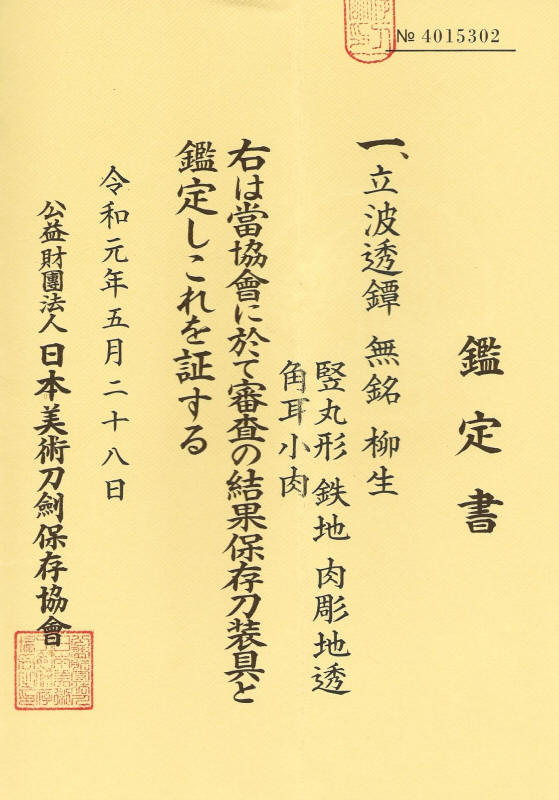 № 4015302
鑑定書
一、立波透鐔 無銘 柳生
竪丸形 鉄地 肉彫地透
角耳小肉
右は當協會に於て審査の結果保存刀装具と
鑑定しこれを証する
令和元年五月二十八日
公益財團法人日本美術刀劍保存協會